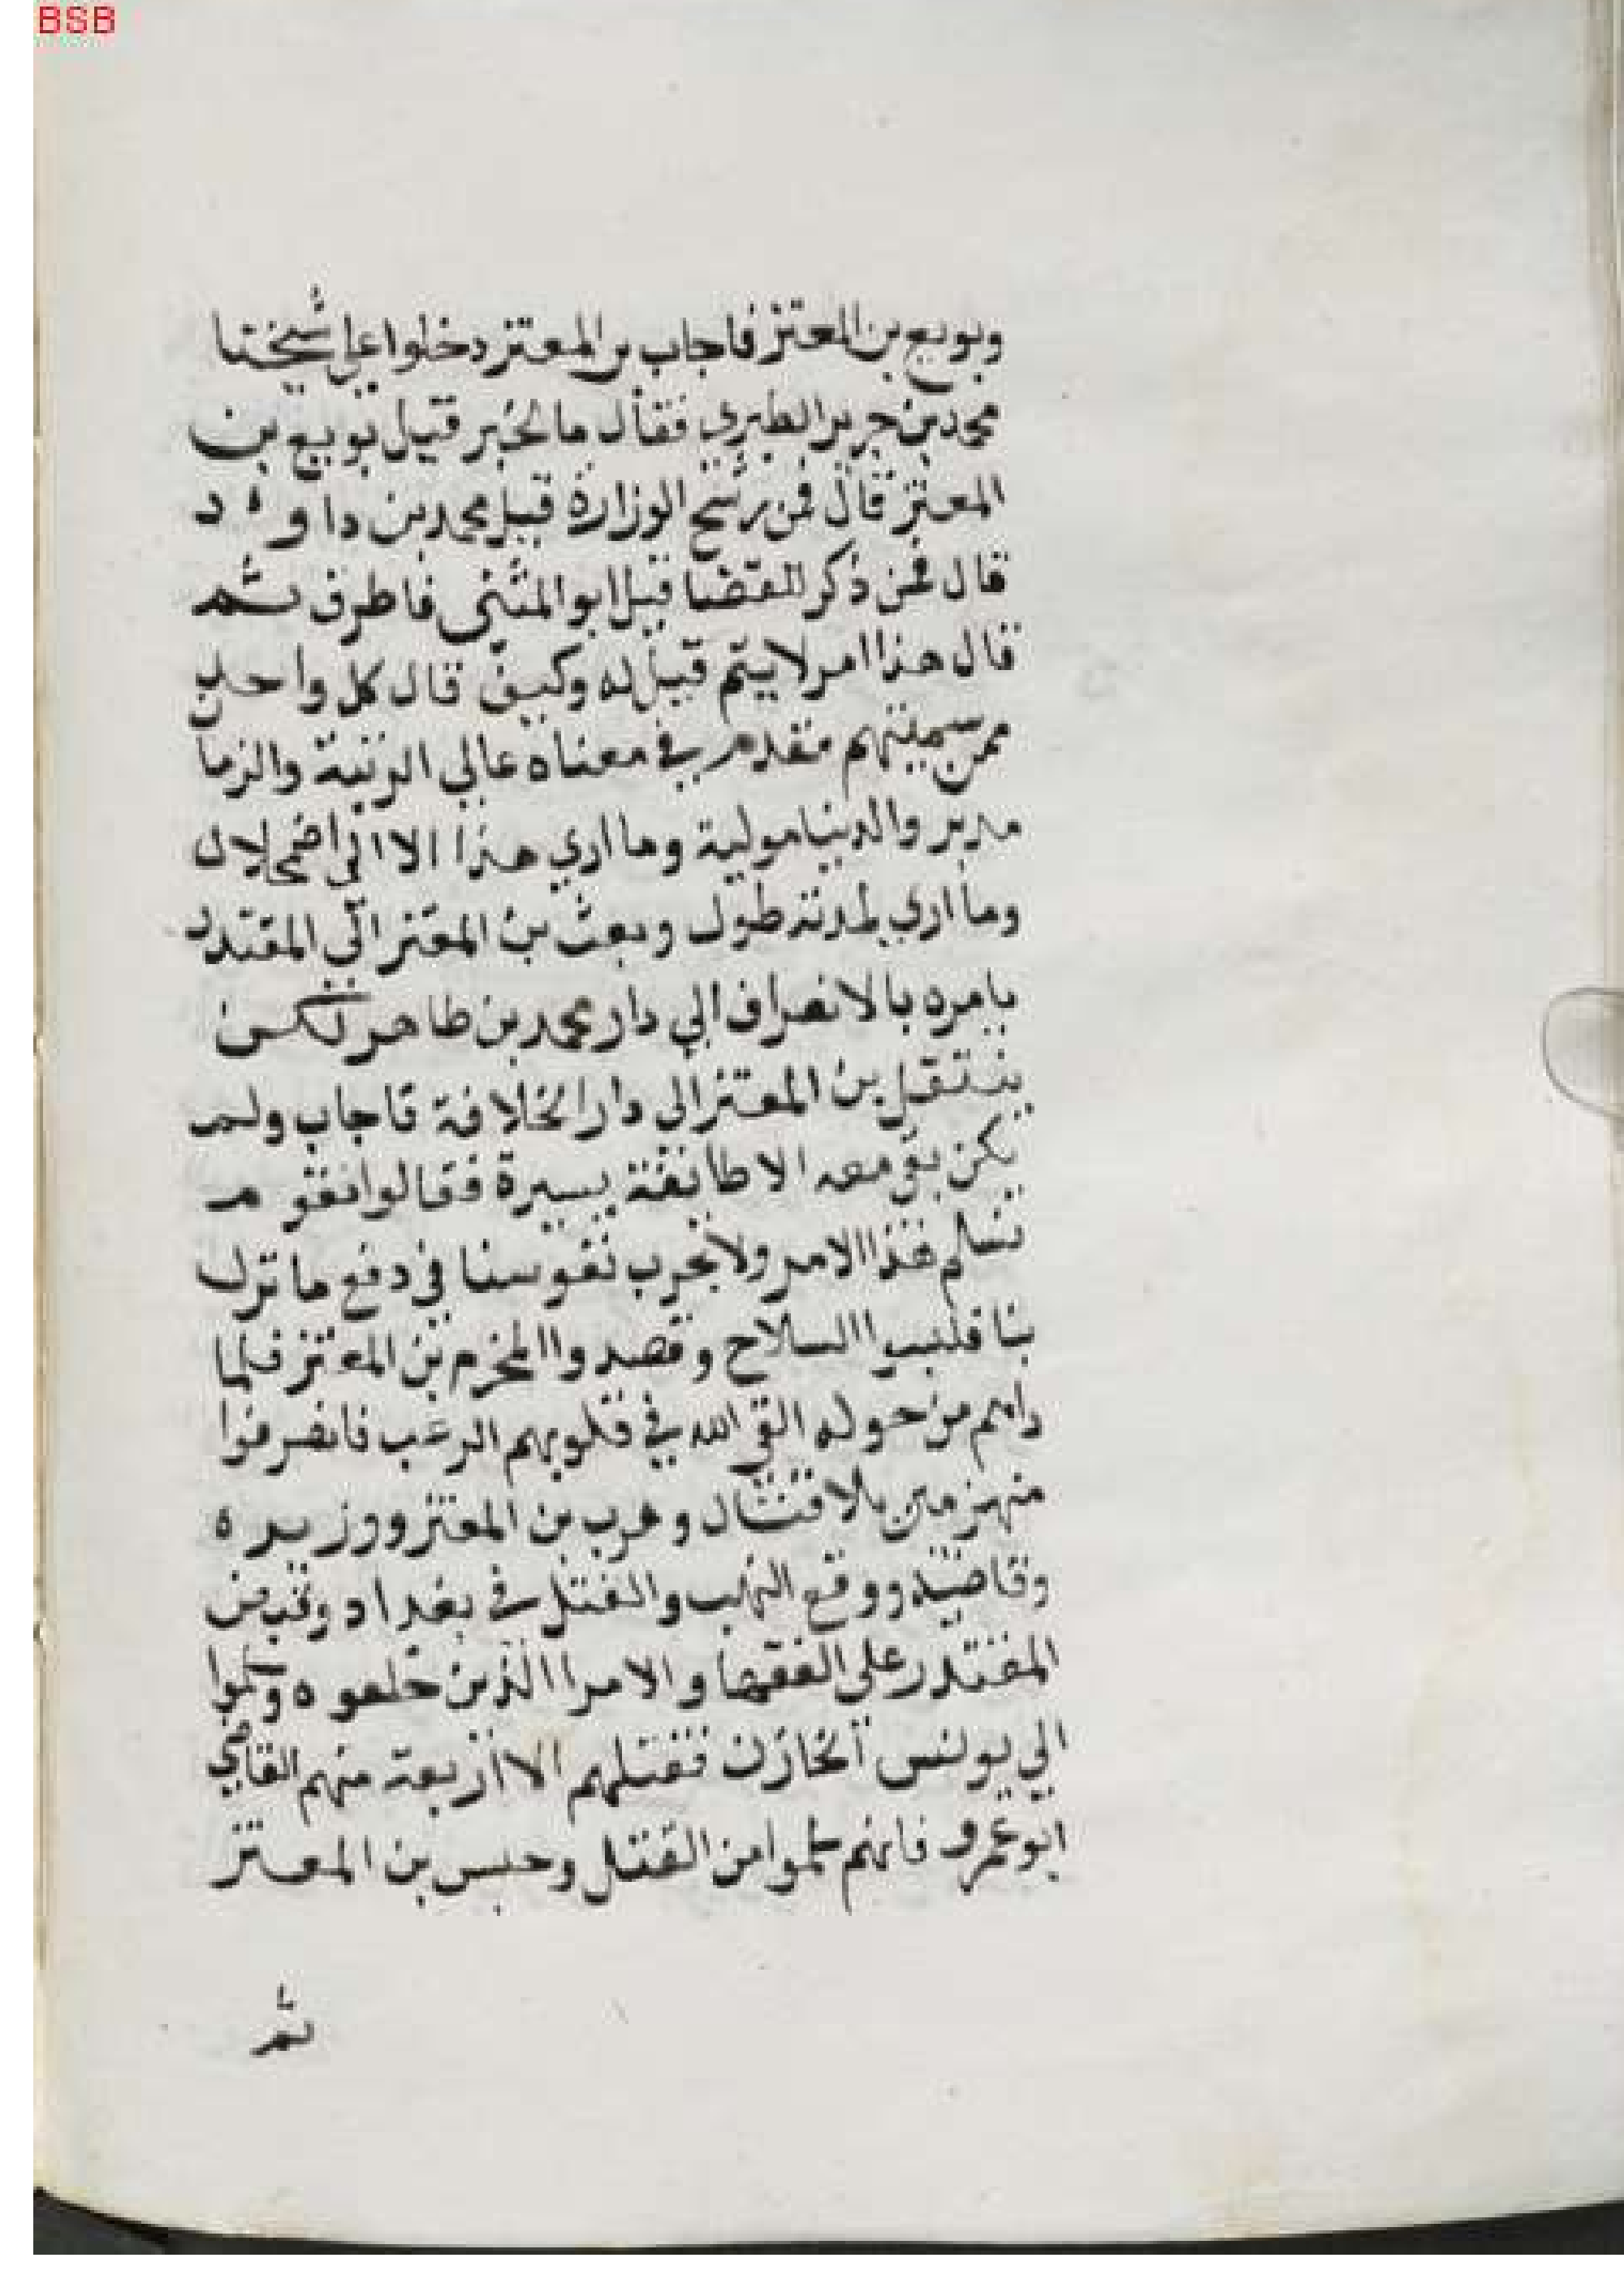 BSB
وبويع بن المعتز فاجاب بن المعتز دخلوا علي شيختا
محمد بن جرير الطبري فقال ما الخبر قيل بويع بن
المعتز قال فمن رشح الوزارة قيل محمد بن داوءد
قال فمن ذكر للقضا قيل ابو المثني فاطرق ثم
قال هذا امر لا يتم قيل له وكيف قال كل واحد
ممن سميتهم متقدم في معناه عالي الرتبة والزما
مدبر والدنيا مولية وما اري هذا الا الي اضمحلال
وما اري لمدته طول وبعث بن المعتز الي المقتدر
يامره بالانصراف الي دار محمد بن طاهر لكي
ينتقل بن المعتز الي دار الخلافة فاجاب ولم
يكن بقي معه الا طايفة يسيرة فقالوا نقوم
نسلم هذا الامر ولا نجرب نفوسنا في دفع ما نزل
بنا فلبسوا السلاح وقصدوا المخرم بن المعتز فلما
راهم من حوله القي الله في قلوبهم الرعب فانصرفوا
منهزمين بلا قتال وهرب بن المعتز ووزيره
وقاضيه ووقع النهب والقتل في بغداد وقبض
المقتدر علي الفقها والامرا الذين خلعوه وسلموا
الي يونس الخازن فقتلهم الا اربعة منهم القاضي
ابو عمرو فانهم سلموا من القتل وحبس بن المعتز
ثم